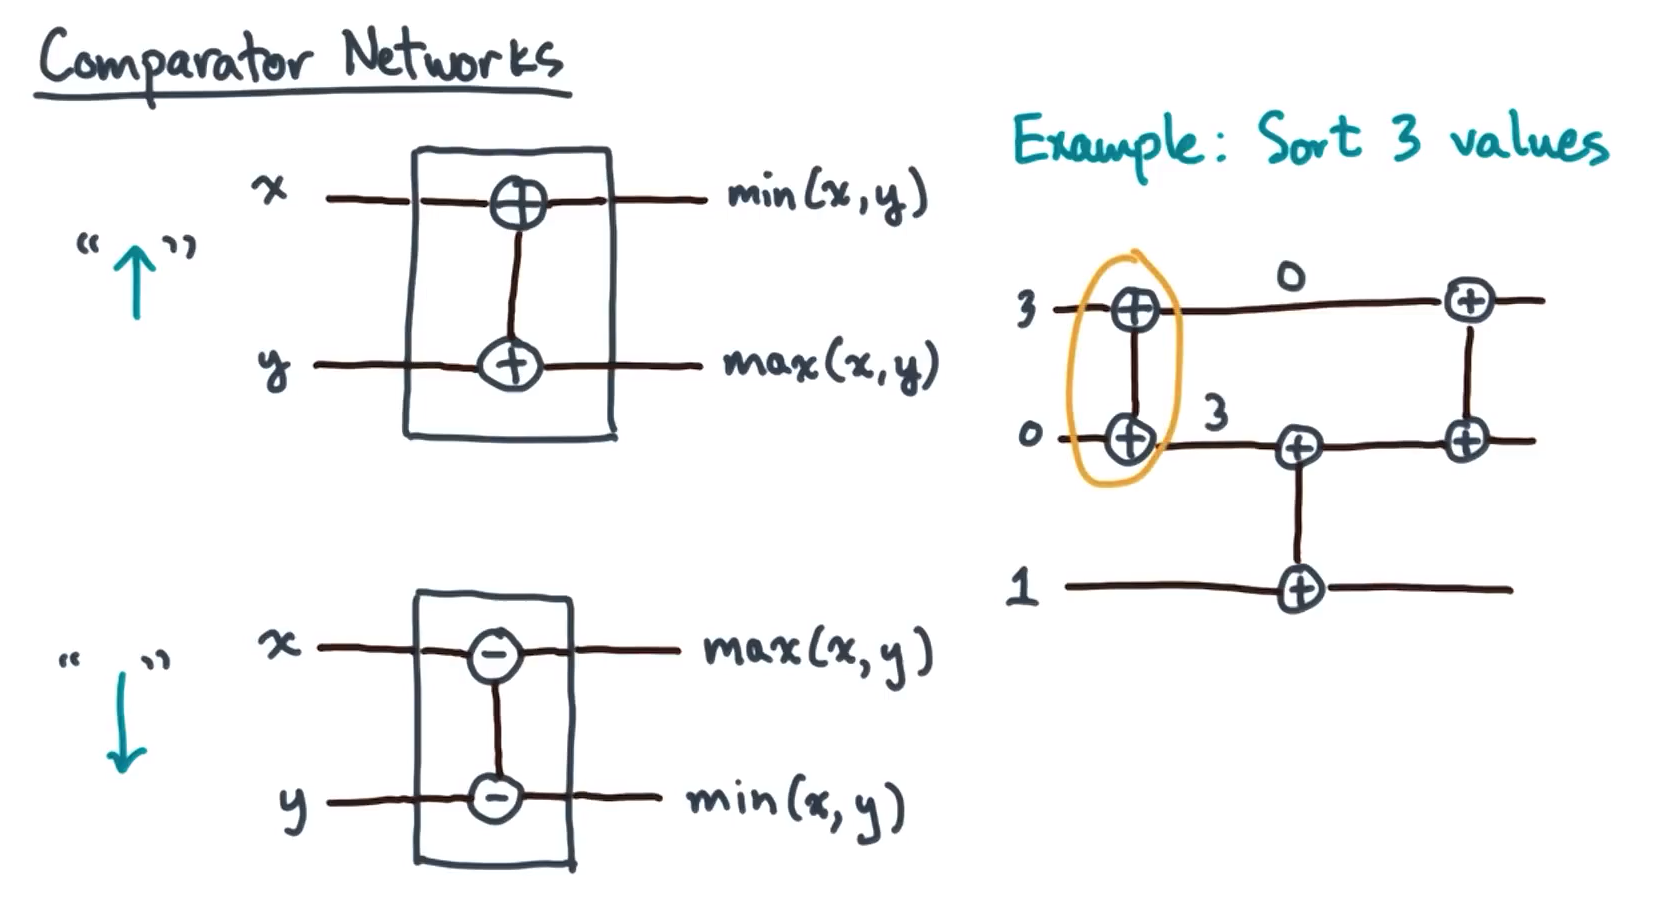 Comparator Networks
x ⊕ min(x,y)
“↑”
y ⊕ max(x,y)
x ⊖ max(x,y)
“↓”
y ⊖ min(x,y)
Example: Sort 3 values
3 ⊕ 0 ⊕
0 ⊕ 3 ⊕ ⊕
1 ⊕